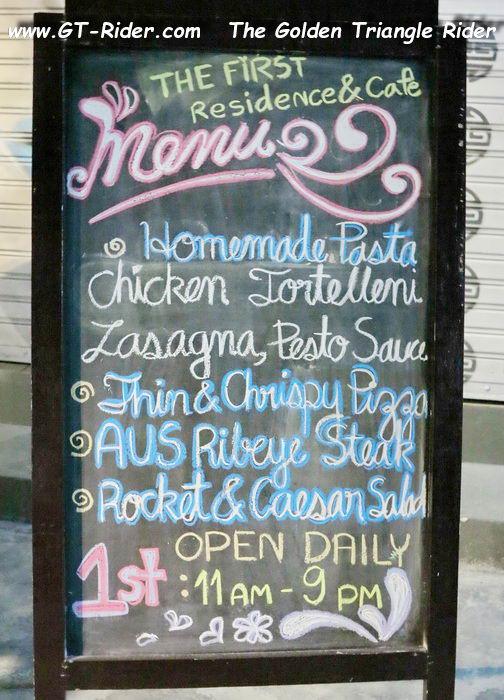 www.GT-Rider.com The Golden Triangle Rider
THE FIRST
Residence & Cafe
Menu
Homemade Pasta
Chicken Tortelleni
Lasagna, Pesto Sauce
Thin & Chrispy Pizza
AUS Ribeye Steak
Rocket & Caesar Salad
OPEN DAILY
1st : 11 AM - 9 PM